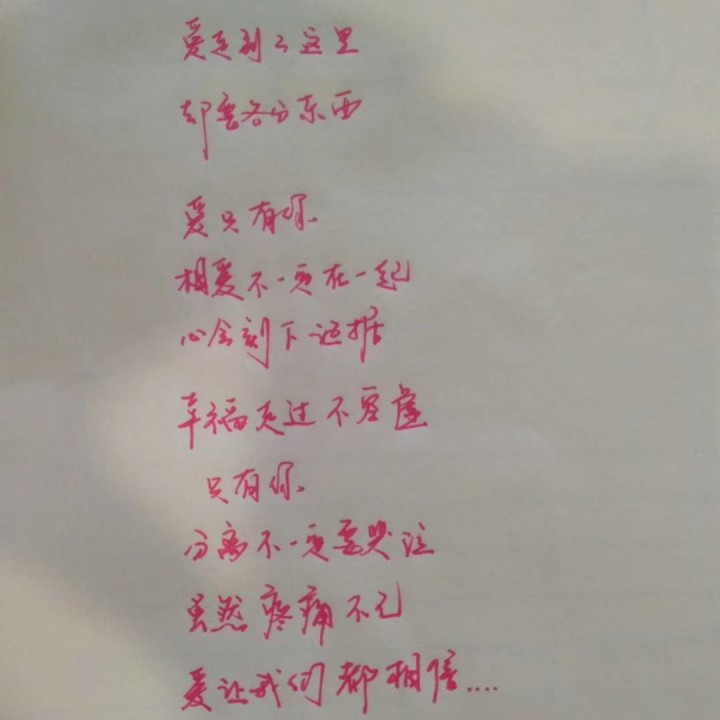 爱走到了这里
却要各分东西
爱只有你
相爱不一定在一起
心会刻下证据
幸福走过不空虚
只有你
分离不一定要哭泣
虽然疼痛不已
爱让我们都相信....